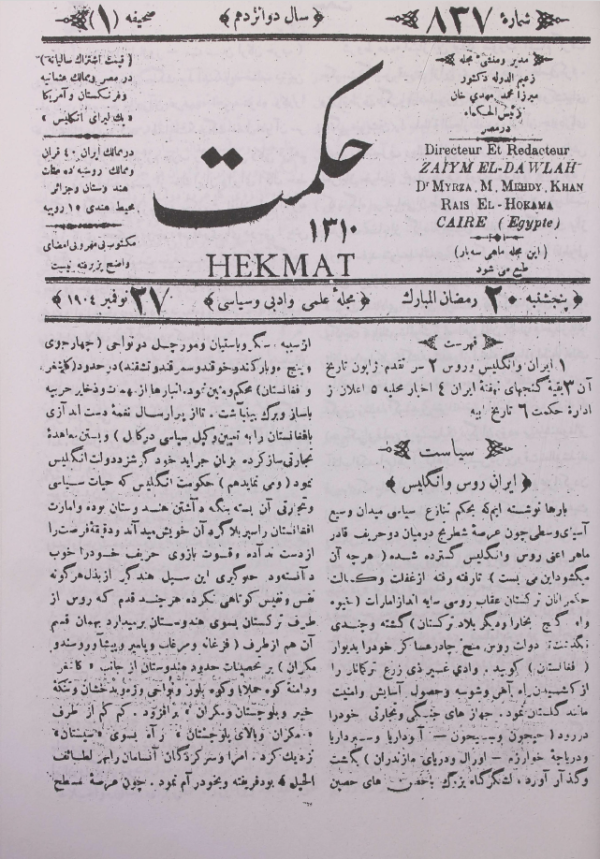 شمارهٔ ۸۳۷
﴿ سال دوانزدهم ﴾
صحیفه ( ۱ )
مدیر ومنشیٔ مجله
زعیم الدوله دکتور
میرزا محمد مهدی خان
رئیس الحکماء
درمصر
Directeur Et Redacteur
ZAIYM EL-DAWLAH
Dr Myrza, M, Mehdy, Khan
Rais El-Hokama
CAIRE ( Egypte)
( این مجله ماهی سه بار )
طبع می شود
حکمت
۱۳۱۰
HEKMAT
( قیمت اشتراك سالیانه )
در مصر وممالك عثمانیه
وفرنکستان وآمریکا
« یك لیرای انکلیس »
درممالك ایران ۴۰ قران
وممالك روسیه ده منات
هندوستان وجزائر
محیط هندی ۱۵ روپیه
مکتوب بی مهر وبی امضای
واضح پزیرفته نیست
﴿ پنجشنبه ۲۰ رمضان المبارك
﴿ مجلهٔ علمی وادبی وسیاسی ﴾
۲۷ نوفمبر ۱۹۰۴ ﴾
فهرست
۱ ایران وانگلیس وروس ۲ سر تقدم ژاپون تاریخ
آن ۳ بقیهٔ گنجهای نهفتهٔ ایران ۴ اخبار محلیه ۵ اعلان از
ادارهٔ حکمت ۶ تاریخ
سیاست
﴿ ایران روس وانگلیس ﴾
بارها نوشته ایم که بحکم تنازع سیاسی میدان وسیع
آسیای وسطی چون عرصهٔ شطرنج درمیان دو حریف قادر
ماهر اعنی روس وانگلیس گسترده شده ( هرچه آن
میکشود این می بست ) تا رفته رفته ازغفلت وکسالت
حکمرانان ترکستان عقاب روسی سایه انداز امارات ( خیوه
واه گنج بخارا ودیگر بلاد ترکستان ) گشته وچندی
نگذشت دولت روس میخ چادر عساکر خودرا بدیوار
( افغانستان ) کوبید . وادی غیر ذی زرع ترکمانرا
از کشیدن راه آهن وشوسه وحصول آسایش وامنیت
مانند گلستان نمود . جهاز های جنگی وتجارتی خودرا
دررود ( جیحون وسیحون — آمودریا وسیردریا
ودریاچهٔ خوارزم – اورال ودریای مازندران ) بگشت
وگذار آورد . لشگرگاه بزرگ های حصین
ازسیبه . سنگر وباستیان ومورچل درنواحی ( چهارجوی
وپنج ده وتاشکند) درحدود (کاشغر
و افغانستان ) محکم ومتین نمود . انبارها از مهمات وذخایر حربیه
باساز وبرگ بینباشت . تا از پی ارسال نغمهٔ دست اندازی
بافغانستان را به تعیین وکیل سیاسی درکابل ) وبستن معاهدهٔ
تجارتی ساز کرده بزبان جراید خود گوشزد دولت انگلیس
نمود ( ومی نمایدهم ) حکومت انگلیس که حیات سیاسی
وتجارتی آن بسته بنگه داشتن هندوستان بوده وامارت
افغانستان را سپر بلاگردان خویش میداند ودقیقهٔ فرصت را
ازدست نداده وقوت بازوی حریف خودرا خوب
دانسته در جلوگیری این سیل هندگیر ازبذل هرگونه
نفس ونفیس کوتاهی نکرده هرچند قدم که روس از
طرف ترکستان بسوی هندوستان برمیدارد بهمان قسم
آن هم ازطرف ( فرغانه ومرغاب وپامیر وپیشاور وسند و
مکران ) بر تحصینات حدود هندوستان از جانب « کاشغر
ودامنهٔ کوه هملایا وکوه بلور ونواحی وبدخشان وتنگهٔ
خیبر وبلوچستان ومکران » برافزود . کم کم از طرف
« مکران وبالای بلوچستان » راه بسوی «سیستان»
نزدیك کرد . امرا وسرکردگان آنسامان رابهر لطائف
الحیل بود فریفته وبخود رام نمود . چون عرصهٔ مسطح